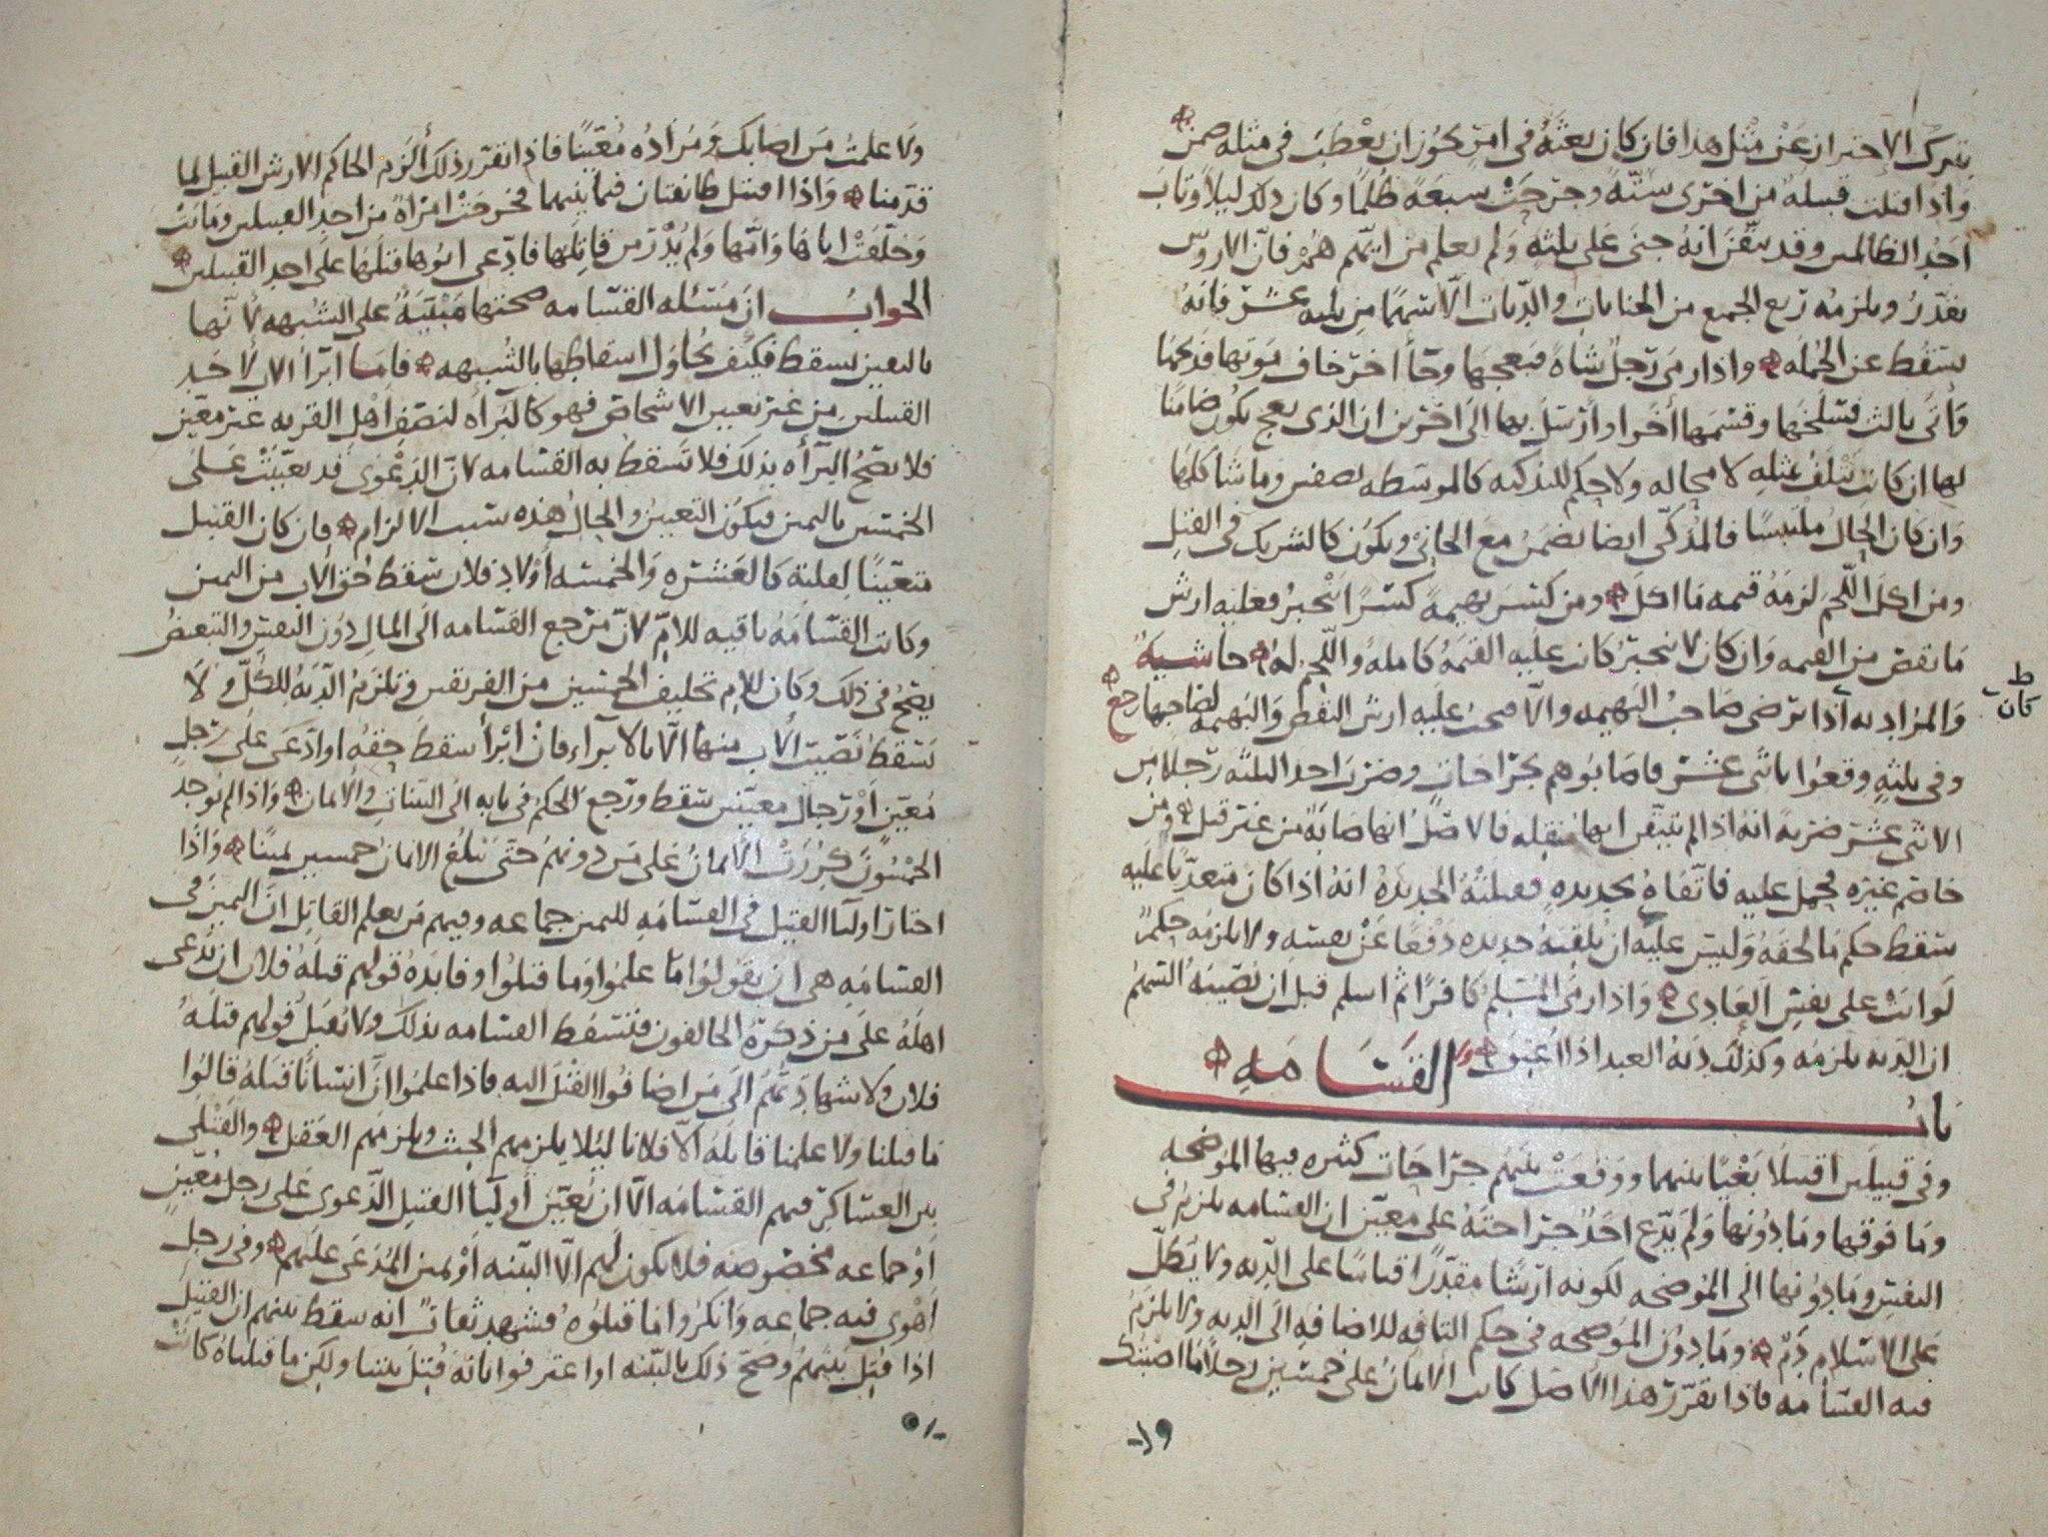 بترك الاحتراز عن مثل هذا فان كان بعثه في امر يجوز ان يعطب في مثله ضمن
واذا قتلت قبيله من اخرى ستة وجرحت سبعة ظلما وكان ذلك ليلا وتاب
احد الظالمين وقد تيقن انه جنى على ثلثه ولم يعلم من ايهم هم فان الاروش
تقدر ويلزمه ربع الجميع من الجنايات والديات الا سهما من ثلثه عشر فانه
يسقط عن الجمله واذا رمى رجل شاة فبعجها وجا اخر خاف موتها فذبحها
واتى ثالث فسلخها وقسمها اخر او ارسل بها الى اخرين ان الذي بعج يكون ضامنا
لها ان كانت تتلف بمثله لا محاله ولا حكم للتذكيه كالموسطه نصفين وما شاكلها
وان كان الحال ملتبسا فالمذكي ايضا يضمن مع الجاني ويكون كالشريك في القتل
ومن اكل اللحم لزمه قيمه ما اكل ومن كسر بهيمة كسرا ينجبر فعليه ارش
ما نقص من القيمه وان كان لا ينجبر كانت عليه القيمة كاملة واللحم له حاشية
والمراد به اذا ترضى صاحب البهيمه والا صحت عليه ارش النقص والبهيمه لصاحبها رجع
ط
كانت
وفي ثلثه وقعوا باثنى عشر فاصابوهم بجراحات وضرب احد الثلثه رجلا من
الاثنى عشر ضربة انه اذا لم يتيقن انها منقله فالاصل انها صائبة من غير قتل ومن
خاصم غيره فحمل عليه فاتقاه بحديده فقتلته الحديدة انه اذا كان متعديا عليه
سقط حكم ما لحقه وليس عليه ان يلقيه حديده دفعا عن نفسه ولا يلزمه حكم
لو اتت على نفس العادي واذا رمى المسلم كافرا ثم اسلم قبل ان تصيبه السهم
ان الدية تلزمه وكذلك دية العبد اذا اعتق
باب القسامه
وفي قبيلين اقتتلا بغيا بينهما ووقعت بينهم جراحات كثيره فيها الموضحه
وما فوقها وما دونها ولم يدع احد جراحته على معين ان القسامه تلزم في
النفس وما دونها الى الموضحه لكونه ارشا مقدرا قياسا على الديه ولا يطل
على الاسلام دم وما دون الموضحه في حكم التافه للاضافه الى الديه ولا يلزم
فيه القسامه فاذا تقرر هذا الاصل كانت الايمان على خمسين رجلا ما اصبتك
١٩
ولا علمت من اصابك ومراده معينا فاذا تقرر ذلك الزم الحاكم الارش القبيل لما
قدمنا واذا اقتتل طائفتان فيما بينهما فخرجت امراة من احد القبيلين وماتت
وخلفت اباها وامها ولم يدر من قاتلها فادعى ابوها قتلها على احد القبيلين
الجواب ان مسئله القسامه صحتها مبنية على الشبهه لانها
بالتعين تسقط فكيف يحاول اسقاطها بالشبهه فاما ابرا الاب لاحد
القبيلين من غير تعيين الاشخاص فهو كالبراه لنصف اهل القريه غير معين
فلا تصح البراه بذلك فلا تسقط به القسامه لان الدعوى قد تعينت على
الخمسين باليمين فيكون التعيين والحال هذه سبب الالزام فان كان القتيل
متعينا لعلية كالعشره والخمسه اولاد فلان سقط حق الاب من اليمين
وكانت القسامة باقيه للام لان مرجع القسامه الى المال دون النفس والتبعض
يصح في ذلك وكان للام تحليف الخمسين من الفريقين وتلزم الدية للكل ولا
تسقط نصيب الاب منها الا بالابراء فان ابرأ سقط حقه او ادعى على رجل
معين او رجال معينين سقط ورجع الحكم في بابه الى البينات والايمان واذا لم يوجد
الخمسون كررت الايمان على من دونهم حتى تبلغ الايمان خمسين يمينا واذا
اختار اوليا القتيل في القسامه لليمين جماعه وفيهم من يعلم القاتل ان اليمين في
القسامه هي ان يقولوا ما علموا وما قتلوا وفايدة قولهم قتله فلان ان يدعى
اهله على من ذكره الحالفون فتسقط القسامه بذلك ولا يقبل قولهم قتله
فلان ولا شهادتهم الى من اضافوا القتل اليه فاذا علموا ان انسانا قتله قالوا
ما قتلنا ولا علمنا قاتله الا فلانا ليلا يلزمهم الحنث ويلزمهم العقل والقتلى
بين العساكر فيهم القسامه الا ان يعين اوليا القتيل الدعوى على رجل معين
او جماعه مخصوصه فلا يكون لهم الا البينه او يمين المدعى عليهم وفي رجل
اهوى فيه جماعه وانكروا ما قتلوه فشهد ثقات انه سقط بينهم ان القتيل
اذا قتل بينهم وصح ذلك بالبينه او اعترفوا بانه قتل بيننا ولكن ما قتلناه كانت